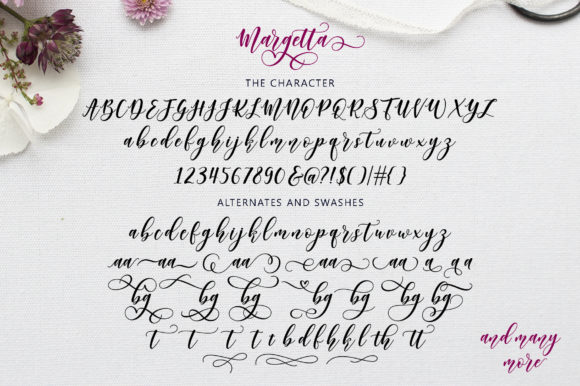 Margetta
THE CHARACTER
ABCDEFGHIJKLMNOPQRSTUVWXYZ
abcdefghijklmnopqrstuvwxyz
1234567890&@?!$()|#{}
ALTERNATES AND SWASHES
abcdefghijklmnopqrstuvwxyz
aa aa aa aa aa a aa
bg bg bg bg bg bg bg
t t t t t b d f h k l th tt
and many
more